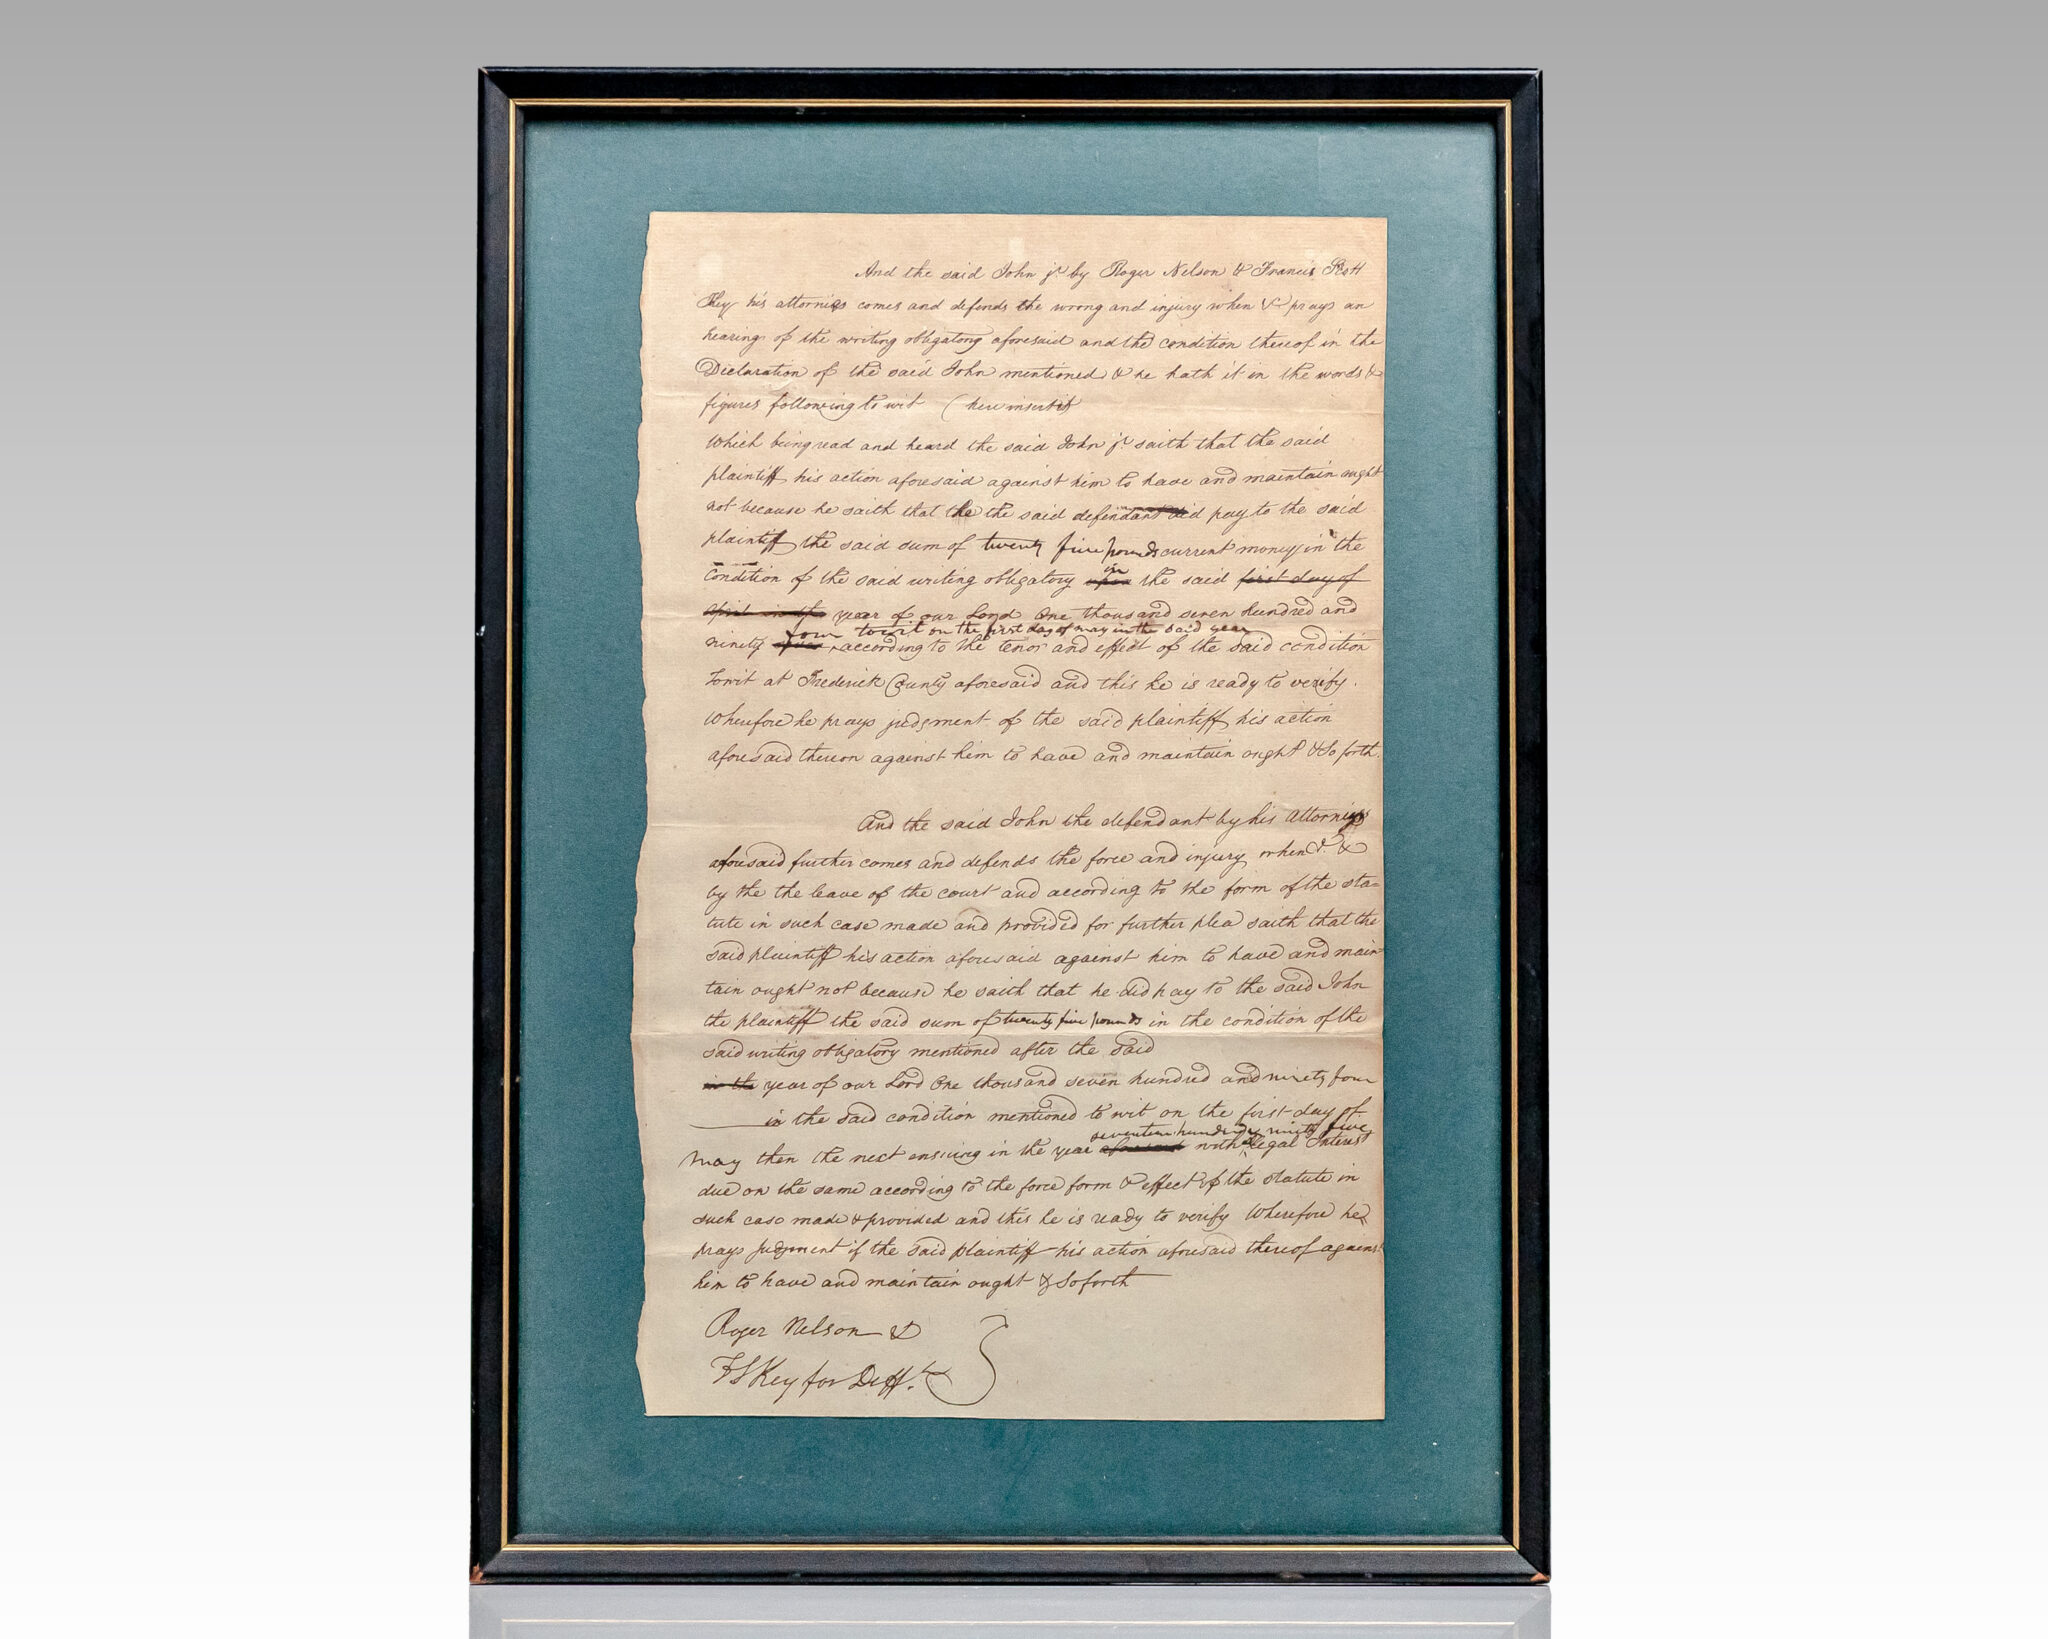 And the said John jr by Roger Nelson & Francis Scott
Key his attornies comes and defends the wrong and injury when & prays an
hearing of the writing obligatory aforesaid and the condition thereof in the
Declaration of the said John mentioned & he hath it in the words &
figures following to wit ( here insert it
Which being read and heard the said John jr saith that the said
plaintiff his action aforesaid against him to have and maintain ought
not because he saith that the the said defendant did pay to the said
plaintiff the said sum of twenty five pounds current money in the
in
Condition of the said writing obligatory upon the said first day of
April in the year of our Lord One thousand seven hundred and
four towit on the first day of may in the said year
ninety according to the tenor and effect of the said condition
Towit at Frederick County aforesaid and this he is ready to verify.
Wherefore he prays judgment of the said plaintiff his action
aforesaid thereon against him to have and maintain ought & So forth.
And the said John the defendant by his attornies
aforesaid further comes and defends the force and injury when & &
by the the leave of the court and according to the form of the sta=
tute in such case made and provided for further plea saith that the
said plaintiff his action aforesaid against him to have and main
tain ought not because he saith that he did pay to the said John
the plaintiff the said sum of twenty five pounds in the condition of the
said writing obligatory mentioned after the said
in the year of our Lord One thousand seven hundred and ninety four
in the said condition mentioned to wit on the first day of
seventeen hundred & ninety five
may then the next ensuing in the year aforesaid with legal Interest
due on the same according to the force form & effect of the statute in
such case made & provided and this he is ready to verify Wherefore he
prays judgment if the said plaintiff his action aforesaid thereof against
him to have and maintain ought & So forth
Roger Nelson &
F S Key for Deft.